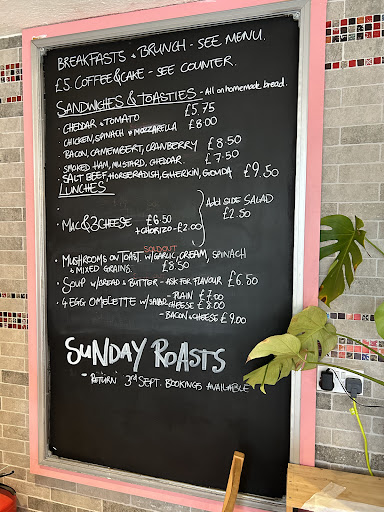 BREAKFASTS & BRUNCH - SEE MENU.
£5. COFFEE & CAKE - SEE COUNTER.
SANDWICHES & TOASTIES - All on homemade bread.
· CHEDDAR & TOMATO £5.75
· CHICKEN, SPINACH & MOZZARELLA £8.00
· BACON, CAMEMBERT, CRANBERRY £8.50
· SMOKED HAM, MUSTARD, CHEDDAR. £7.50
· SALT BEEF, HORSERADISH, GHERKIN, GOUDA £9.50
LUNCHES
· MAC & 3 CHEESE £6.50
+ CHORIZO - £2.00
Add SIDE SALAD
£2.50
SOLD OUT
· MUSHROOMS ON TOAST W/ GARLIC, CREAM, SPINACH
& MIXED GRAINS. £8.50
· SOUP W/ BREAD & BUTTER - ASK FOR FLAVOUR £6.50
· 4 EGG OMELETTE W/ SALAD - PLAIN £7.00
- CHEESE £8.00
- BACON & CHEESE £9.00
SUNDAY ROASTS
- RETURN 3RD SEPT. BOOKINGS AVAILABLE